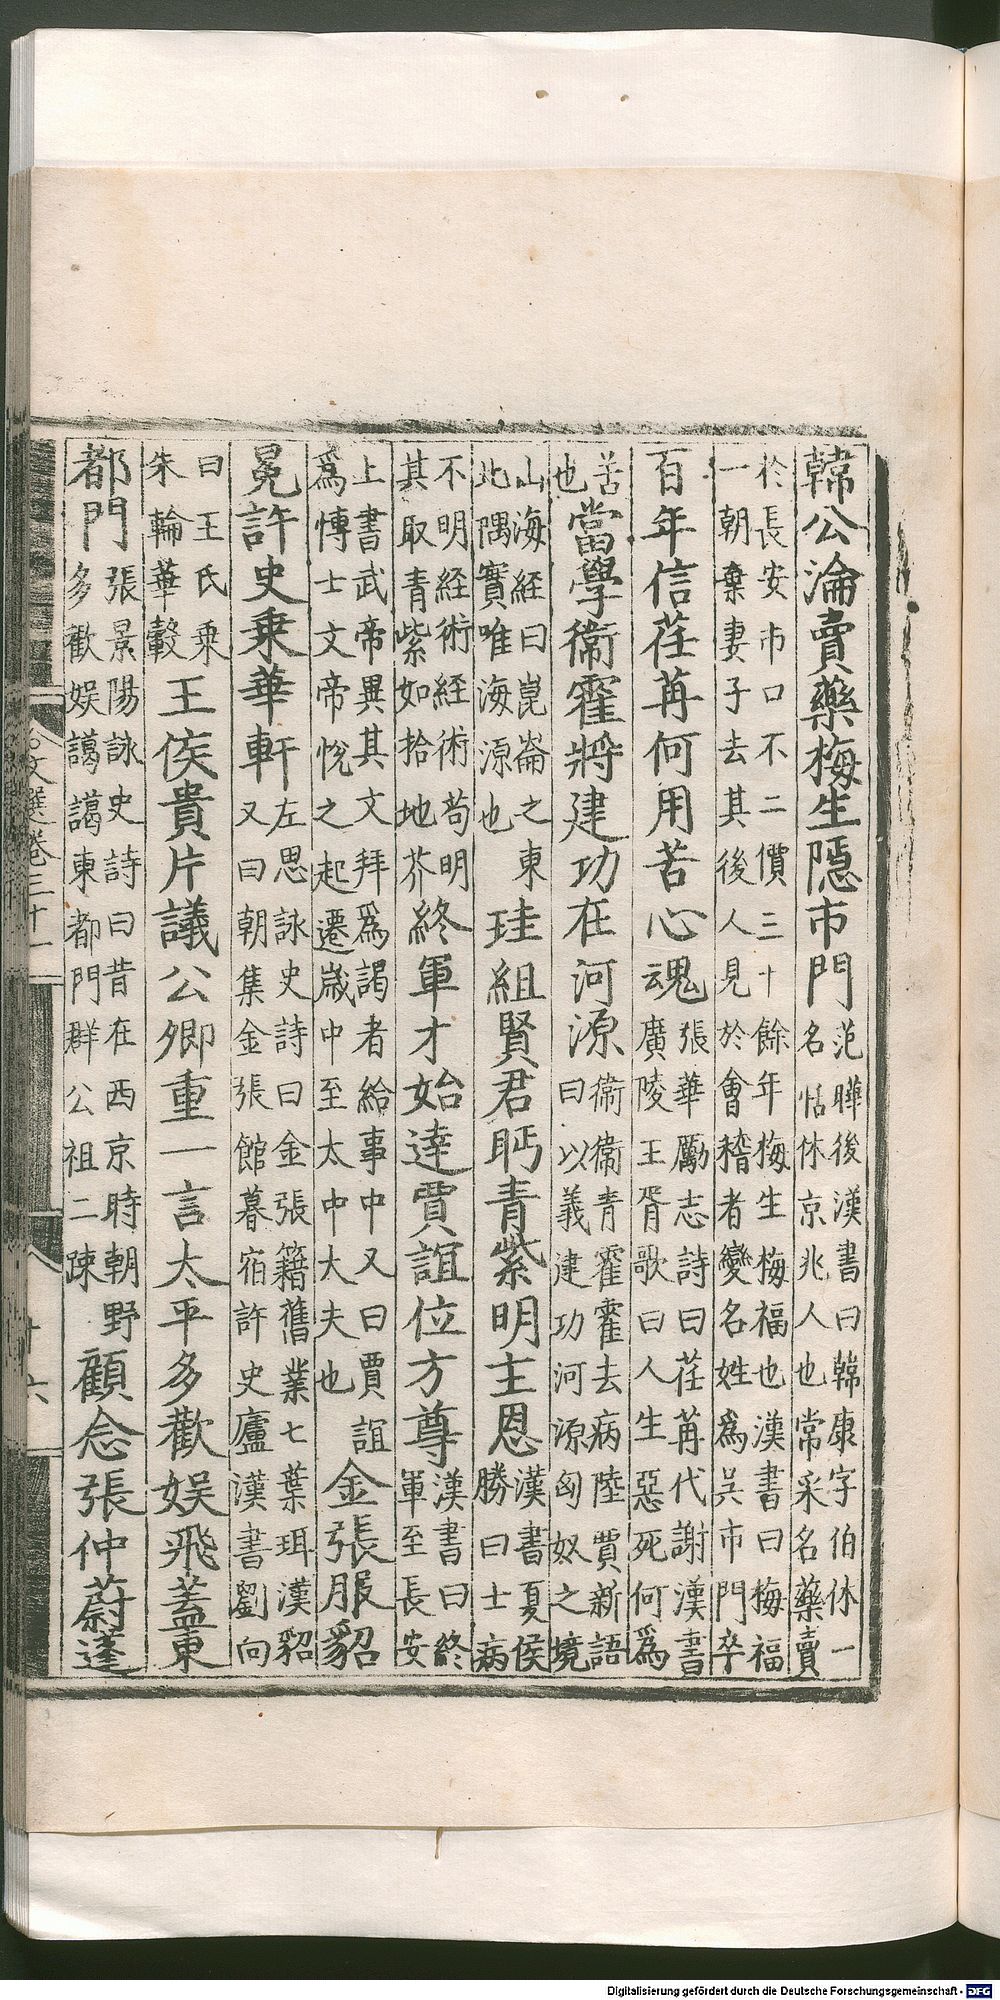 韓公淪賣藥梅生隱市門范曄後漢書曰韓康字伯休一名恬休京兆人也常采名藥賣
於長安市口不二價三十餘年梅生梅福也漢書曰梅福一朝棄妻子去其後人見於會稽者變名姓爲吳市門卒
百年信荏苒何用苦心魂張華勵志詩曰荏苒代謝漢書廣陵王胥歌曰人生惡死何爲
苦也當學衞霍將建功在河源衞衞青霍霍去病陸賈新語曰以義建功河源匈奴之境
山海經曰崑崙之東此隅實唯海源也珪組賢君眄青紫明主恩漢書夏侯勝曰士病
不明經術經術苟明其取青紫如拾地芥終軍才始達賈誼位方尊漢書曰終軍至長安
上書武帝異其文拜爲謁者給事中又曰賈誼爲博士文帝悅之起遷歲中至太中大夫也金張服貂
冕許史乘華軒左思詠史詩曰金張籍舊業七葉珥漢貂又曰朝集金張館暮宿許史廬漢書劉向
曰王氏乘朱輪華轂王侯貴片議公卿重一言太平多歡娛飛蓋東
都門張景陽詠史詩曰昔在西京時朝野多歡娛藹藹東都門群公祖二疎顧念張仲蔚蓬
文選卷三十一 十六
Digitalisierung gefördert durch die Deutsche Forschungsgemeinschaft - DFG